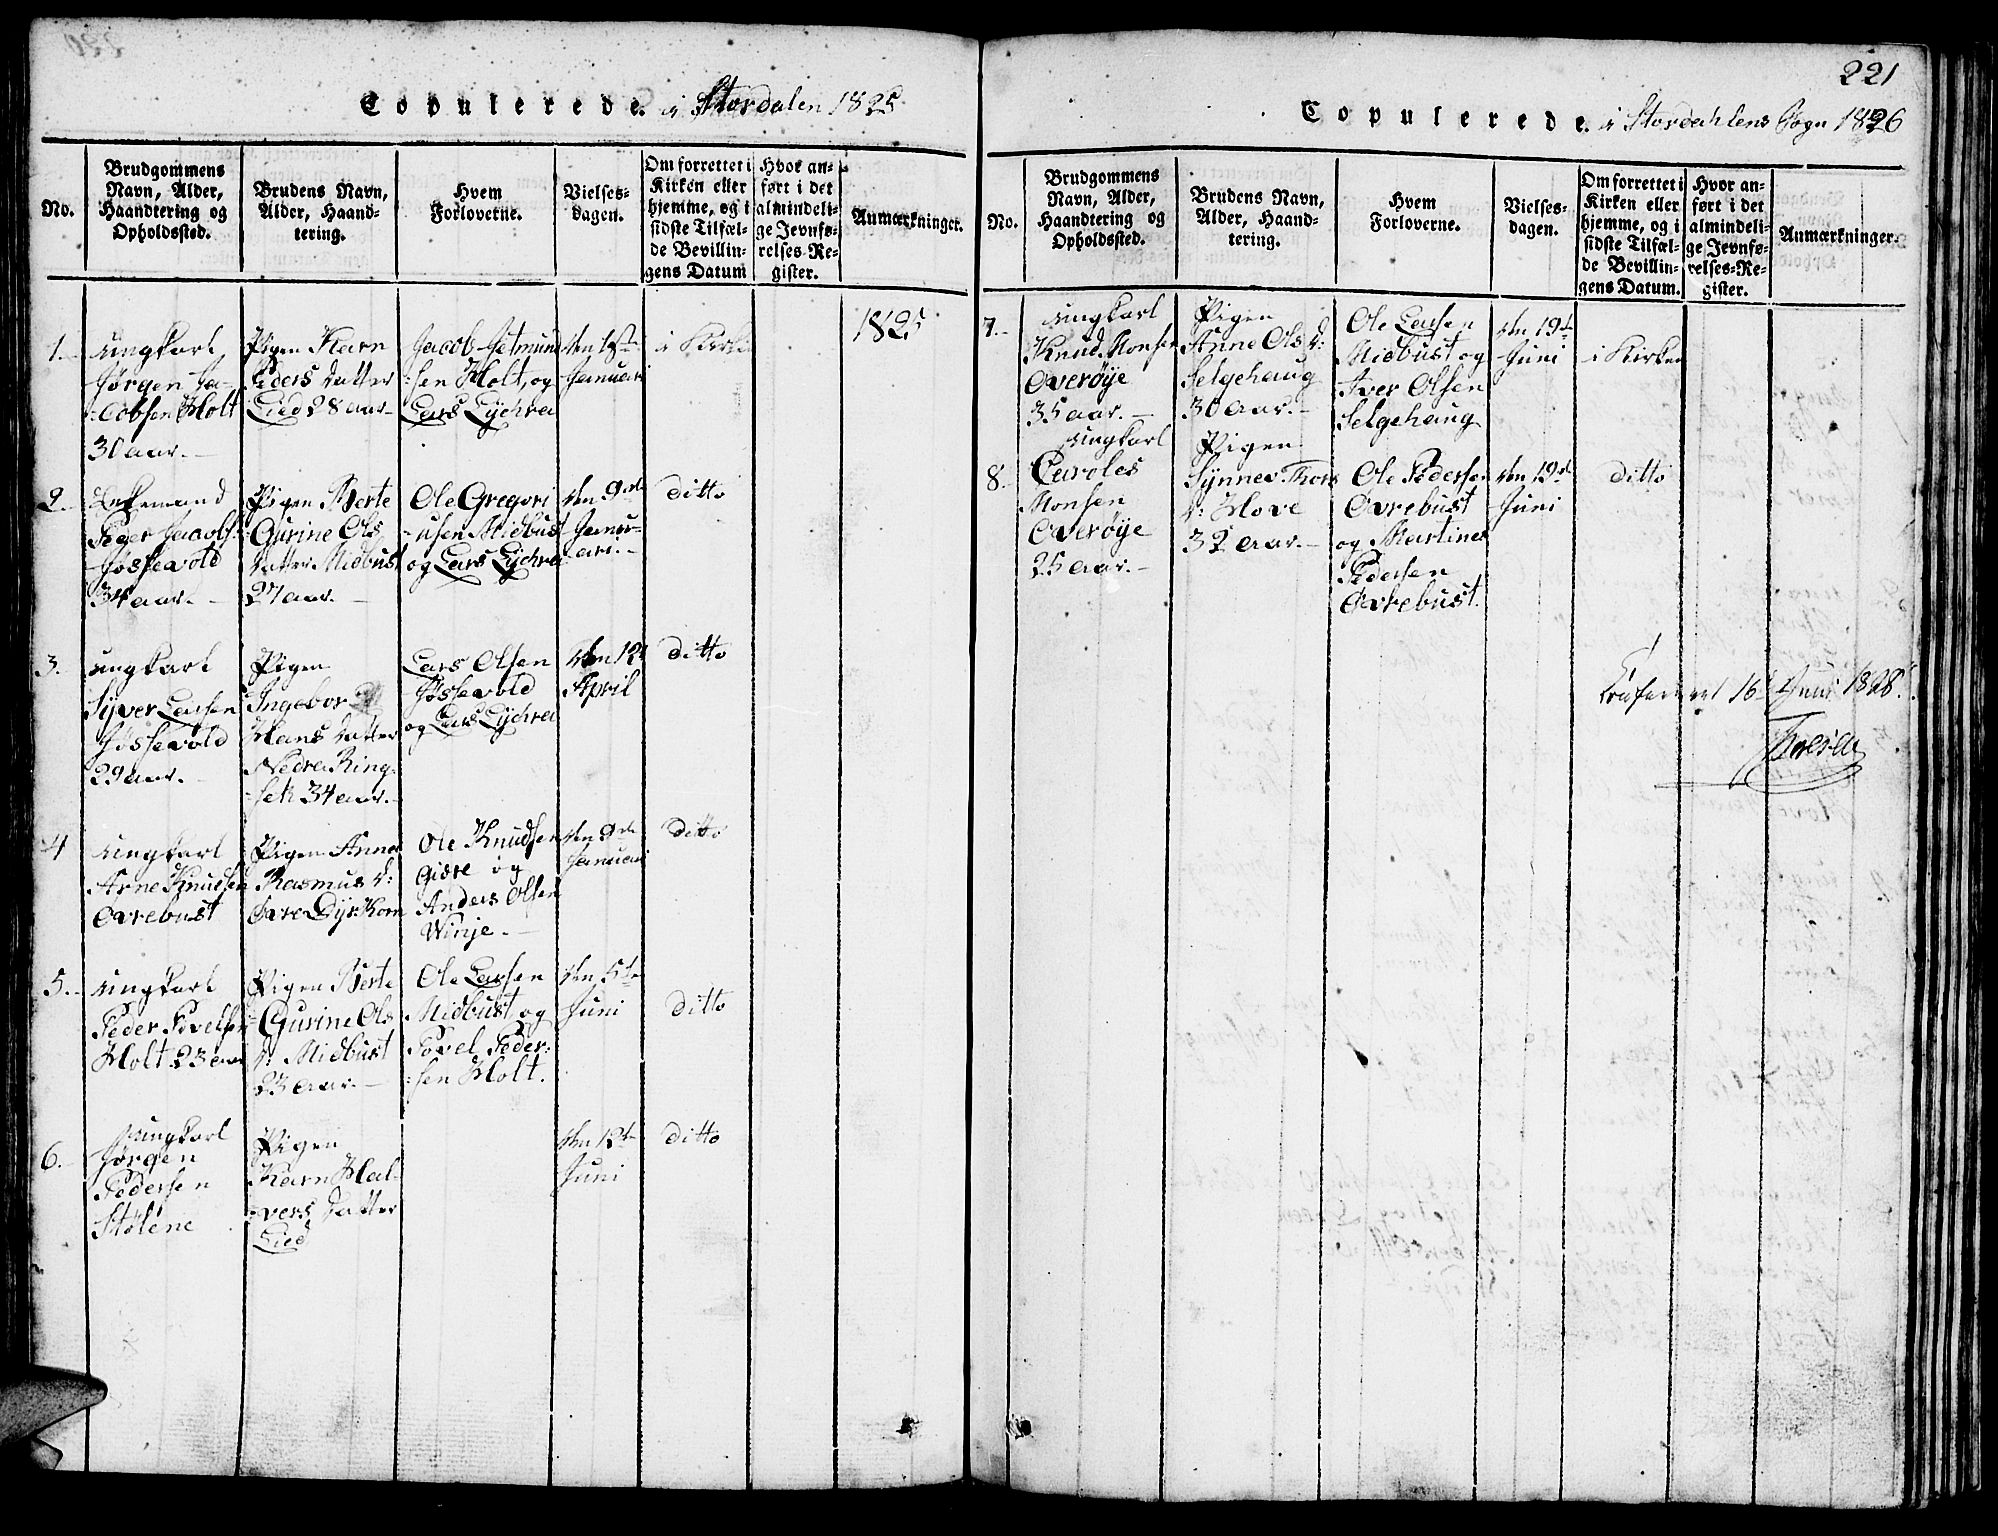 Copulerede. i Stordalen 1825
No.
Brudgommens
Navn, Alder,
Haandtering og
Opholdssted.
Brudens Navn,
Alder, Haand-
tering.
Hvem
Forloverne.
Vielses-
dagen.
Om forrettet i
Kirken eller
hjemme, og i
sidste Tilfæl-
de Bevillin-
gens Datum
Hvor an-
ført i det
almindeli-
ge Jevnfø-
relses-Re-
gister.
Anmærkninger.
1825
1.
ungkarl
Jørgen Ja-
cobsen Holt
30 aar.
Pigen Karn
Peders datter
Lied 28 aar
Jacob Jetmund
sen Holt, og
Lars Lychra
den 1ste
Januari
i Kirke
2.
Enkemand
Peder Jacobs:
Jøssevold
34 aar.
Pigen Berte
Gurine Ols
datter Midbust
27 aar.
Ole Gregori
usen Midbust
og Lars Lychra
den 9de
Janu-
ari.
ditto
3.
ungkarl
Syver Larsen
Jøssevold
29 aar.
Pigen
Ingebor
Hans datter
Nedre Ring-
seth 34 aar.
Lars Olsen
Jøssevold
og Lars Lychra
den 12t
April
ditto
4
ungkarl
Arne Knudsen
Øvrebust
Pigen Anne
Rasmus d:
Øvre Dyrkorn
Ole Knudsen
Giære og
Anders Olsen
Winje.
den 9de
Januari
ditto
5.
ungkarl
Peder Povelsen
Holt 23 aar
Pigen Berte
Gurine Ols
d: Midbust
23 aar.
Ole Larsen
Midbust og
Povel Peder-
sen Holt.
den 5te
Juni
ditto
6.
ungkarl
Jørgen
Pedersen
Stølene
Pigen
Karn Hal-
vers datter
Lied
den 12te
Juni
ditto
221
Copulerede. i Stordahlens Sogn 1826
No.
Brudgommens
Navn, Alder,
Haandtering og
Opholdssted.
Brudens Navn,
Alder, Haand-
tering.
Hvem
Forloverne.
Vielses-
dagen.
Om forrettet i
Kirken eller
hjemme, og i
sidste Tilfæl-
de Bevillin-
gens Datum.
Hvor an-
ført i det
almindeli-
ge Jevnfø-
relses-Re-
gister.
Anmærkninger.
7.
ungkarl
Knud Monsen
Overøye
35 aar.
Pigen
Anne Ols d:
Selgehaug
30 aar.
Ole Larsen
Midbust og
Iver Olsen
Selgehaug
den 19de
Juni
i Kirken
8.
ungkarl
Caroles
Monsen
Overøye
25 aar.
Pigen
Synnev Thors
d: Hove
32 aar.
Ole Pedersen
Øvrebust
og Martines
Pedersen
Øvrebust.
den 19de
Juni
ditto
16 Juni 1828.